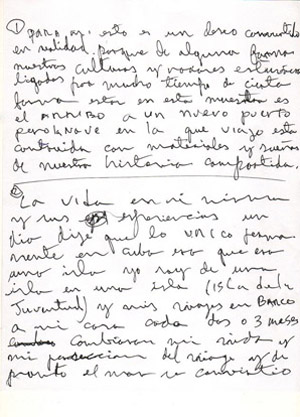 ① para mi esto es un deseo convertido
en realidad. porque de alguna forma
nuestras culturas y raices estuvieron
ligadas por mucho tiempo de cierta
forma esta en esta muestra es
el ARRIBO a un nuevo puerto
pero la NAVE en la que viajo esta
construida con materiales y sueños
de nuestra historia compartida.
② La vida en mi misma
y mis experiencias un
dia dije que lo UNICO perma
nente en cuba era que era
una isla yo soy de una
isla en una isla (isla de la
Juventud) y mis viajes en BARCO
a mi casa cada dos o 3 meses
cambiaron mi vida y
mi del viaje y de
pronto el mar se convirtio